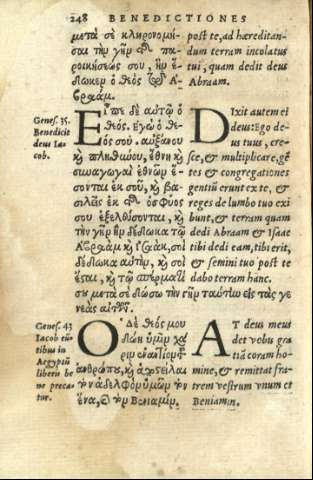 248 BENEDICTIONES
μετὰ σὲ κληρονομῆ-
σαι τὴν γῆν τῆς πα-
ροικήσεώς σου, ἣν ἔ-
δωκεν ὁ θεὸς τῷ Ἀ-
βραάμ.
post te, ad hæreditan-
dum terram incolatus
tui, quam dedit deus
Abraam.
Genes. 35.
Benedicit
deus Ia-
cob.
Εἶπε δὲ αὐτῷ ὁ
θεός. ἐγὼ ὁ θε-
ός σου. αὐξάνου
καὶ πληθύνου, ἔθνη καὶ
συναγωγαὶ ἐθνῶν ἔ-
σονται ἐκ σοῦ, καὶ βα-
σιλεῖς ἐκ τῆς ὀσφύος
σου ἐξελεύσονται, καὶ
τὴν γῆν ἣν δέδωκα τῷ
Ἀβραὰμ καὶ Ἰσαὰκ, σοὶ
δέδωκα αὐτὴν, καὶ σοὶ
ἔσται, καὶ τῷ σπέρματί
σου μετὰ σὲ δώσω τὴν γῆν ταύτην εἰς τὰς γε
νεὰς αὐτῶν.
Dixit autem ei
deus: Ego de-
us tuus, cre-
sce, & multiplicare, gē
tes & congregationes
gentiū erunt ex te, &
reges de lumbo tuo exi
bunt, & terram quam
dedi Abraam & Isaac
tibi dedi eam, tibi erit,
& semini tuo post te
dabo terram hanc.
Genes. 43
Iacob eūtibus in
Aegyptū
liberis be
ne precatur.
Ὁ δὲ θεός μου
δῴη ὑμῖν χά
ριν ἐναντίον τοῦ
ἀνθρώπου, καὶ ἀποστείλαι
τὸν ἀδελφὸν ὑμῶν τὸν
ἕνα, καὶ τὸν Βενιαμίν.
AT deus meus
det vobis gra
tiā coram ho-
mine, & remittat fra-
trem vestrum unum et
Beniamin.